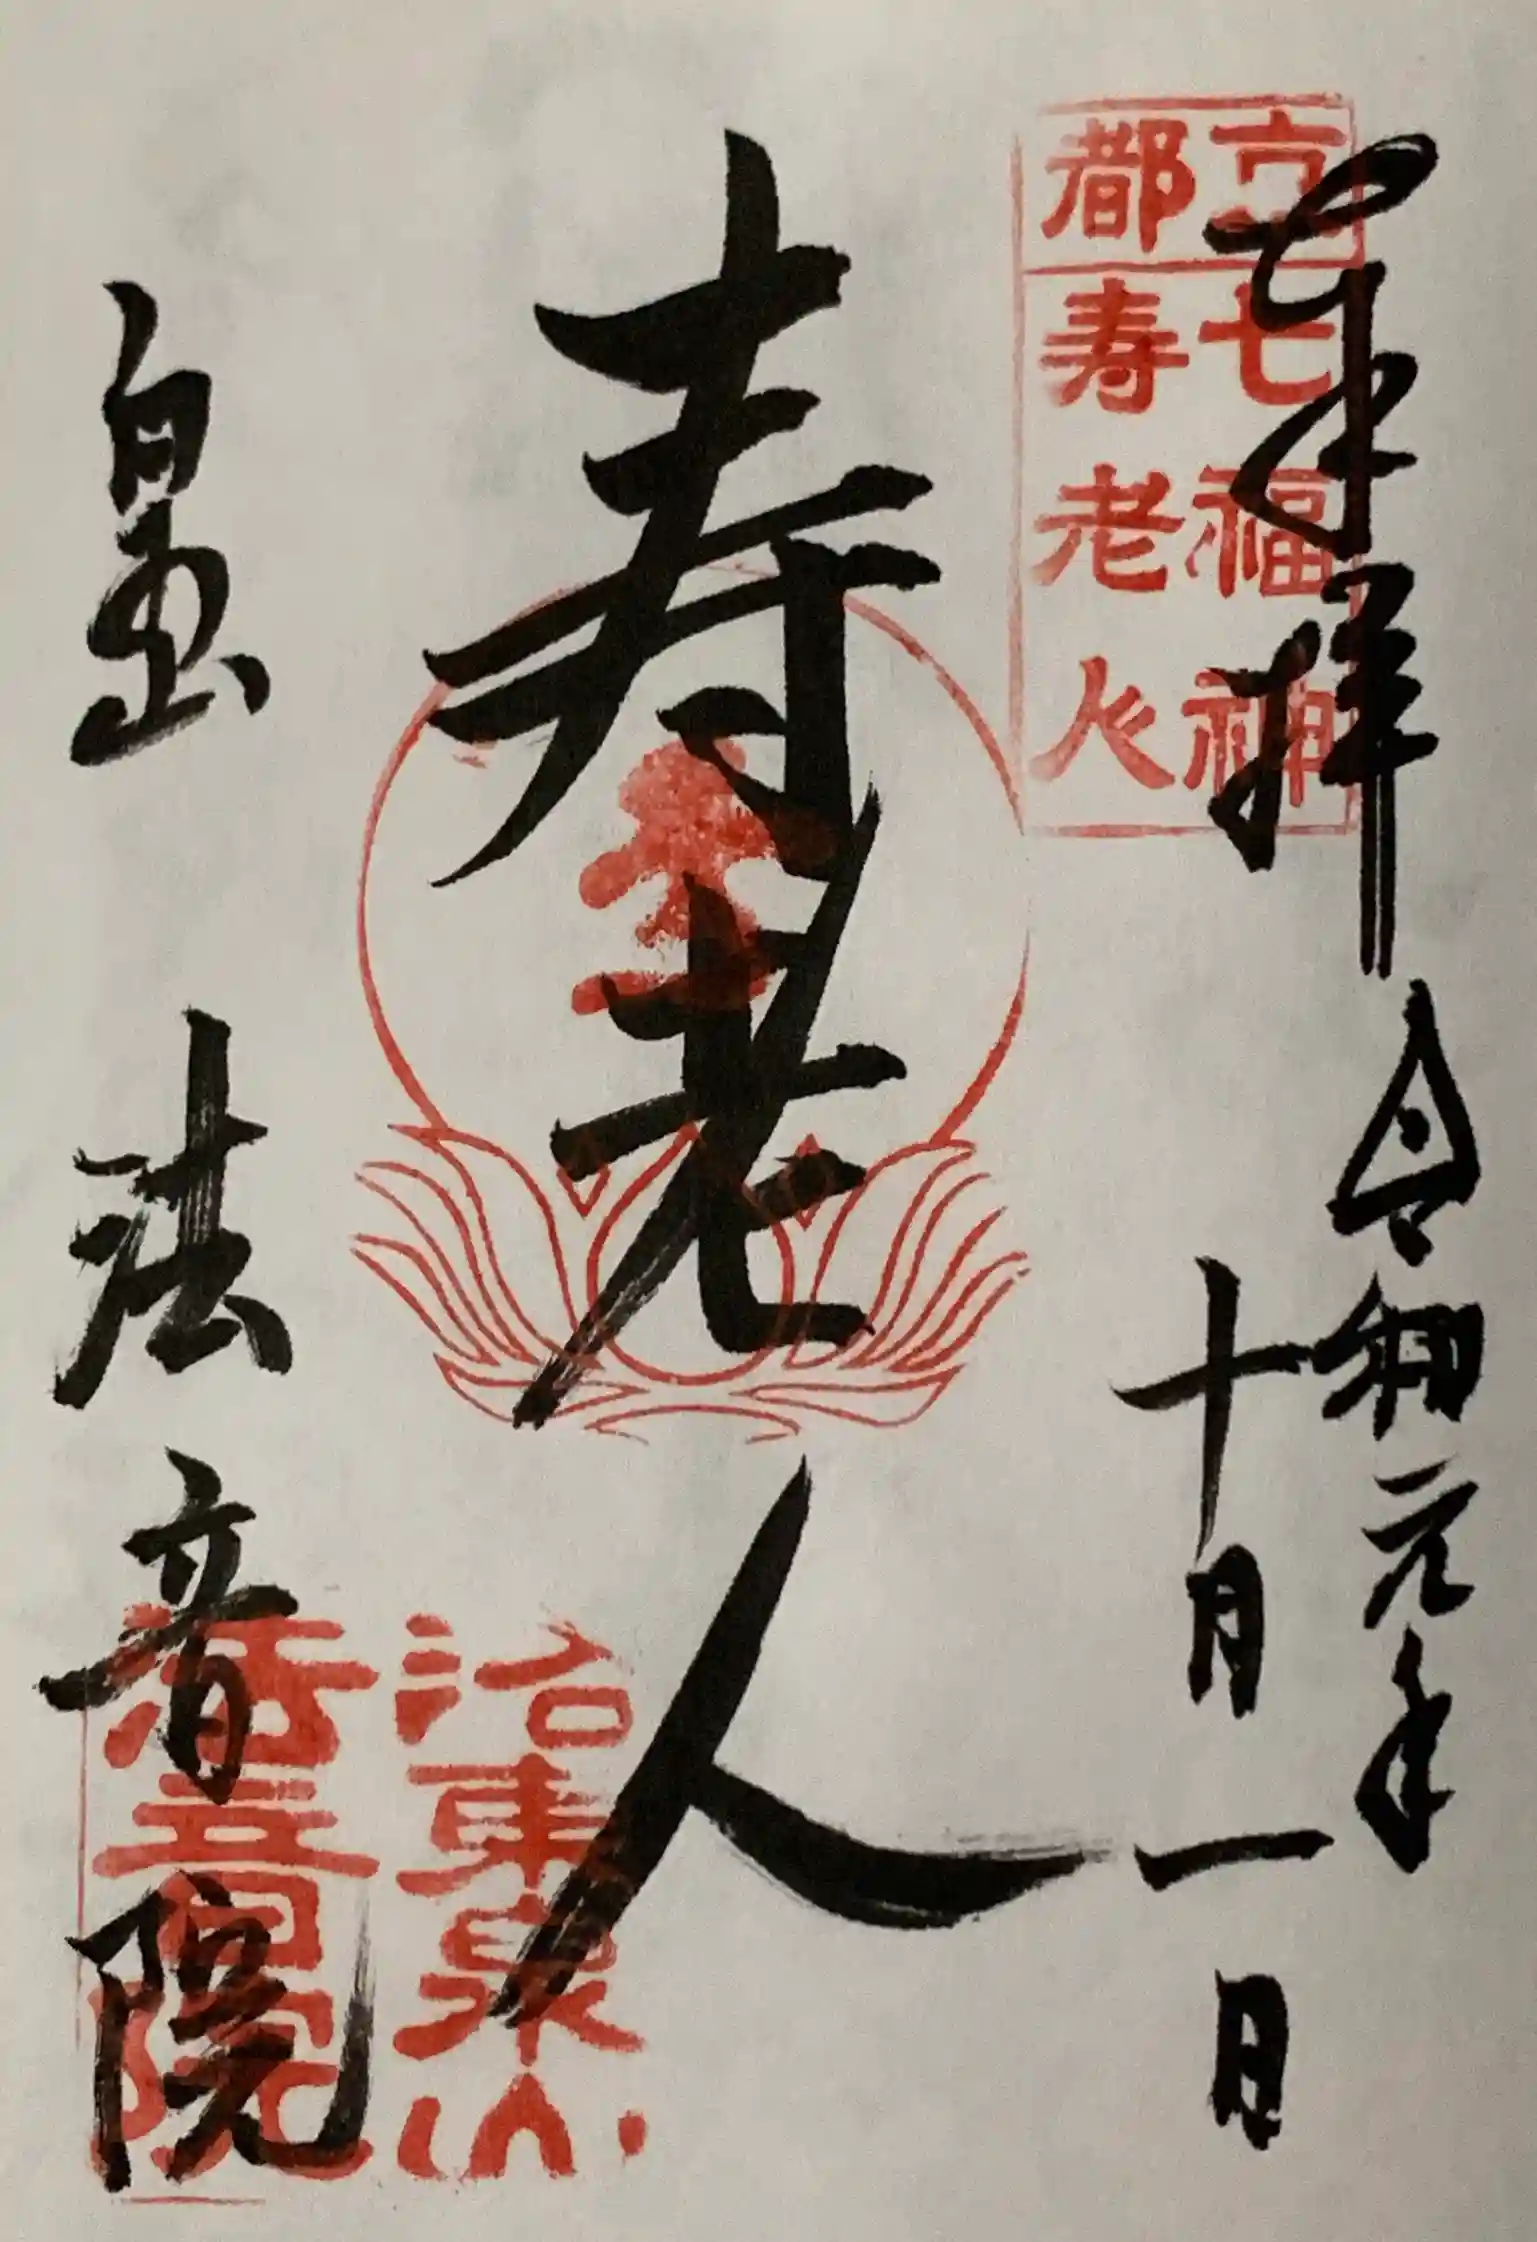 奉拝 令和元年
十月一日
京都
七福神
寿老人
寿老人
泉山 法音院
洛東泉山
法音院